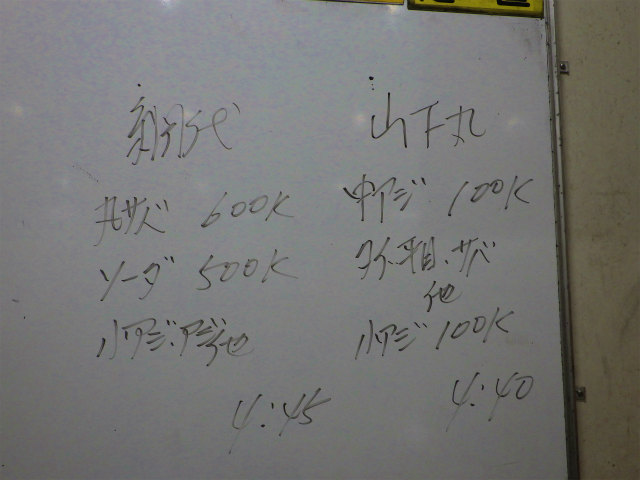 丸サバ 600K
ソーダ 500K
小アジ、アジ他
4:45
山下丸
中アジ 100K
タイ、平目、サバ
他
小アジ 100K
4:40